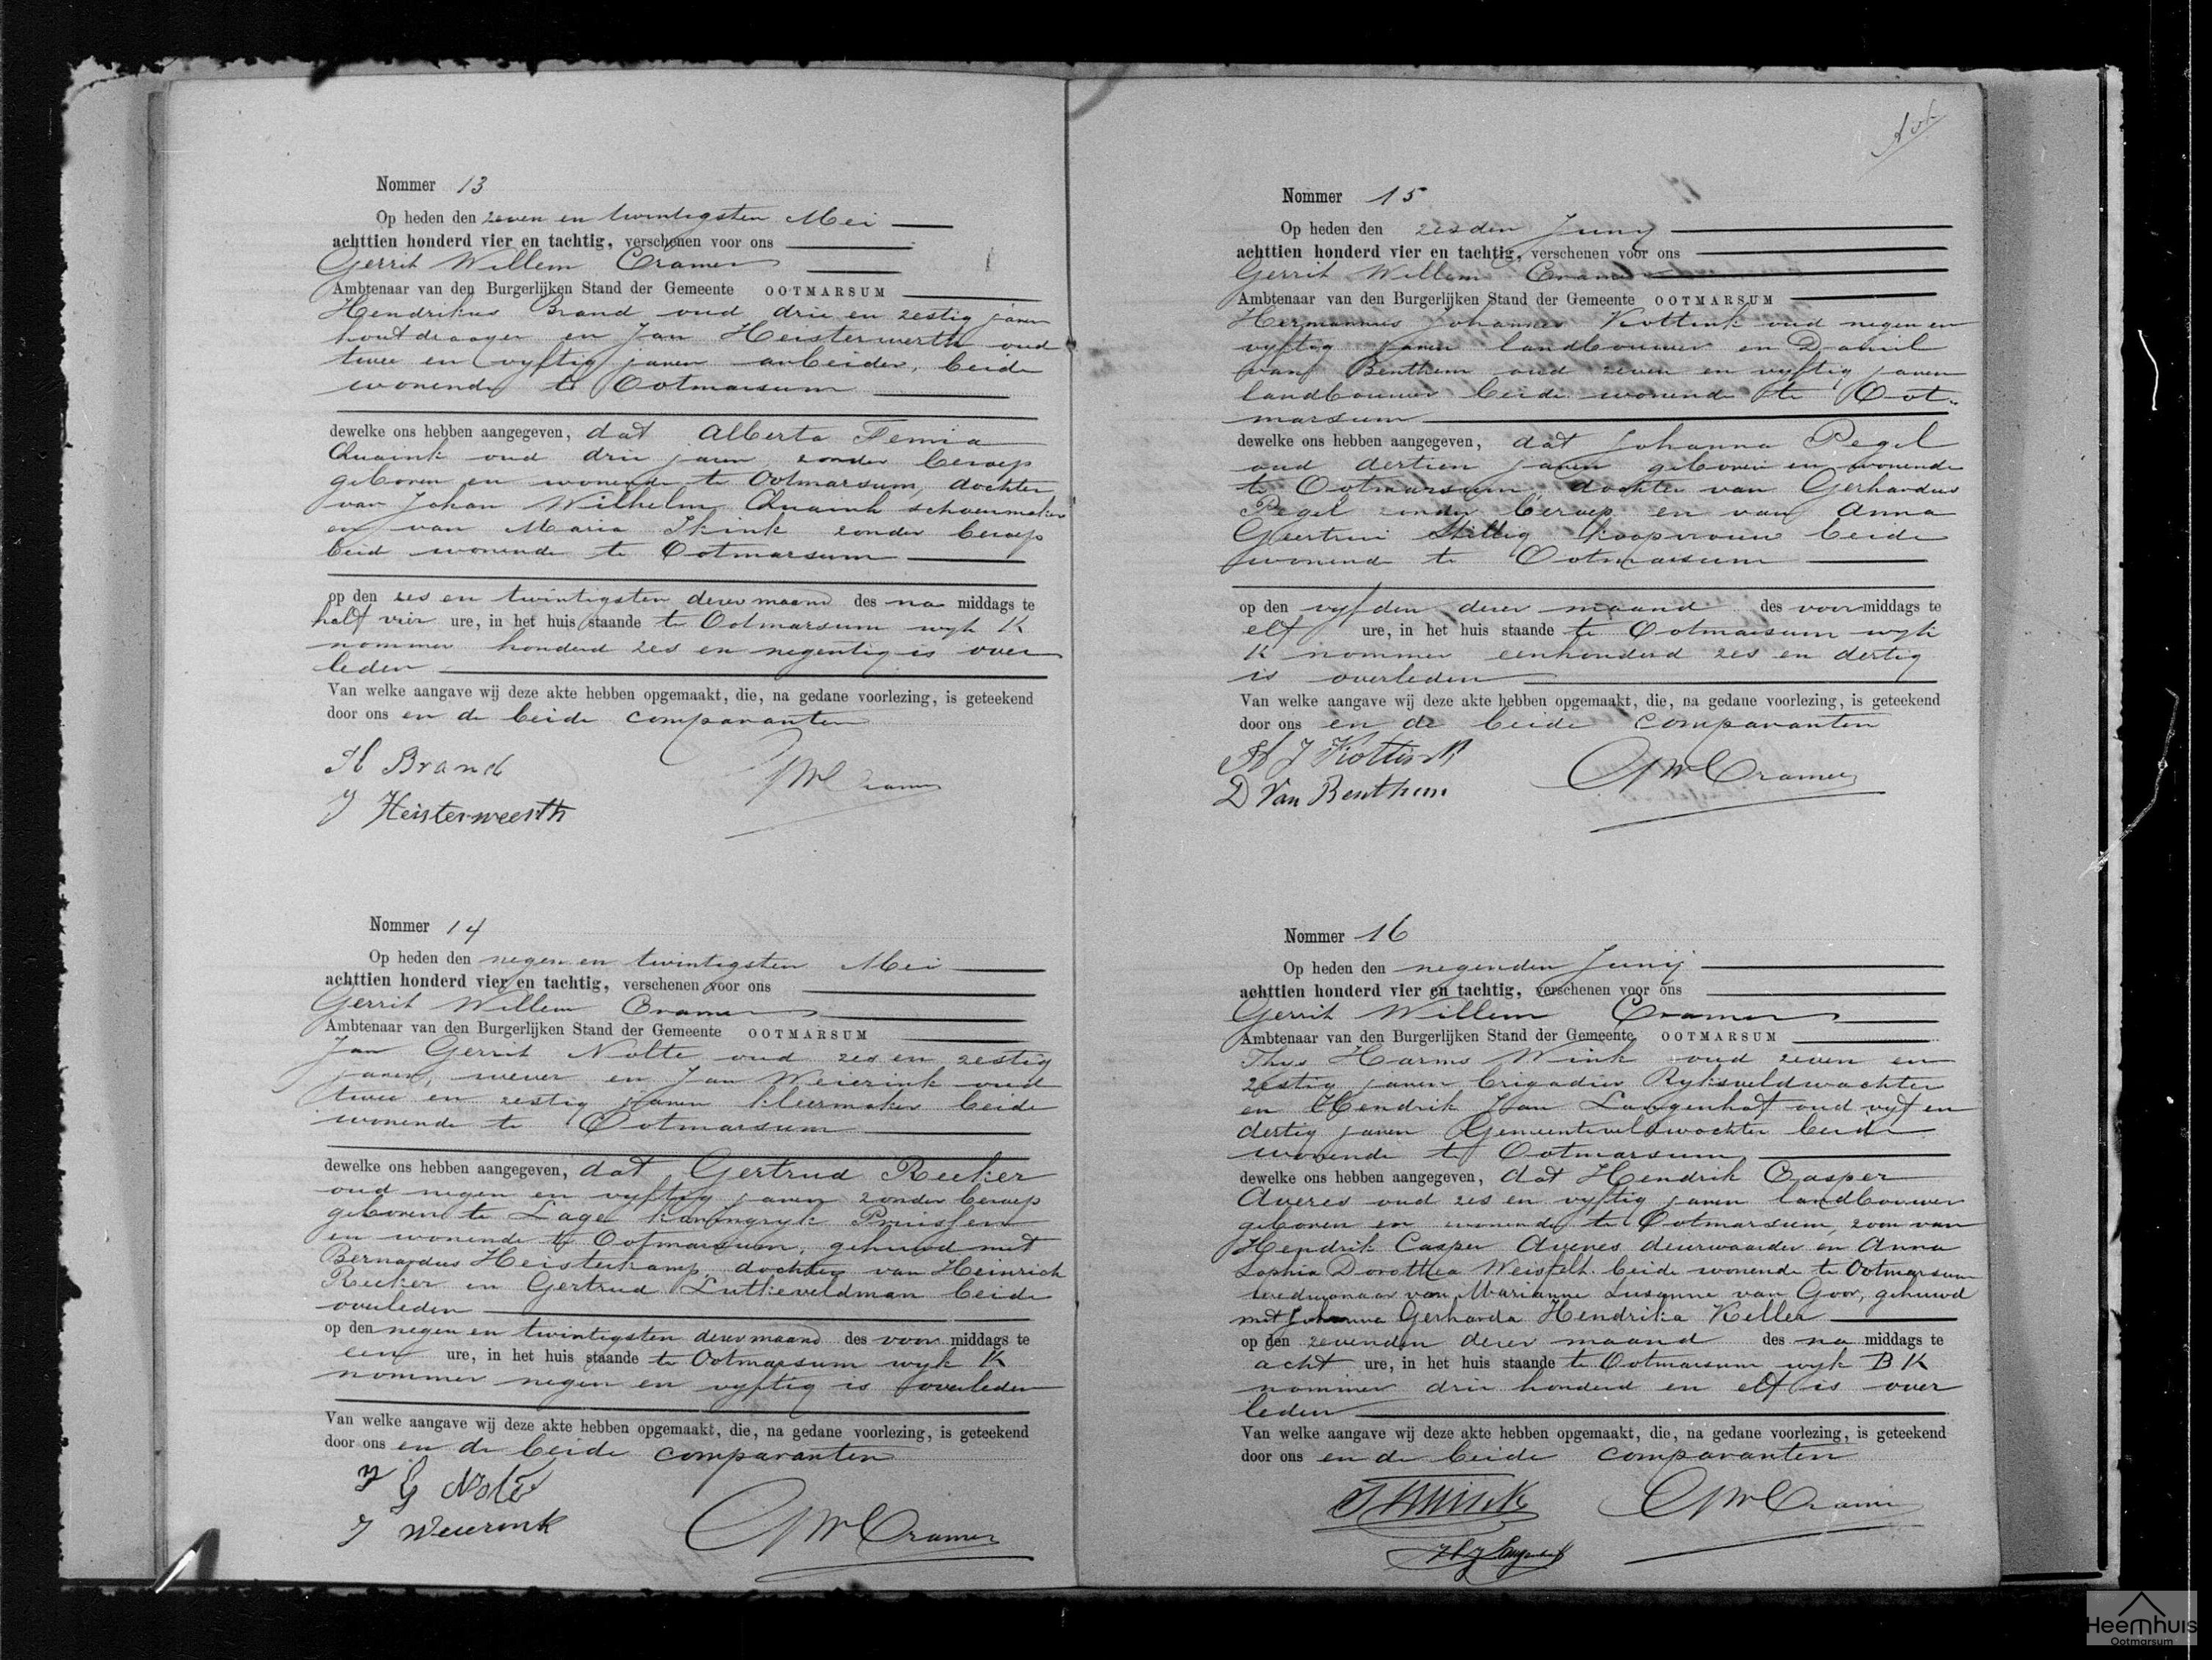 Nommer 13
Op heden den zeven en twintigsten Mei
achttien honderd vier en tachtig, verschenen voor ons
Gerrit Willem Cramer
Ambtenaar van den Burgerlijken Stand der Gemeente OOTMARSUM
Hendrikus Brand oud drie en zestig jaren
houtdraager en Jan Heisterwerth oud
twee en vyftig jaren arbeider, beide
wonende te Ootmarsum
dewelke ons hebben aangegeven, dat Alberta Femia
Quaink oud drie jaren zonder beroep
geboren en wonende te Ootmarsum, dochter
van Johan Wilhelm Quaink schoenmaker
en van Maria Ikink zonder beroep
beid wonende te Ootmarsum
op den zes en twintigsten dezer maand des na middags te
half vier ure, in het huis staande te Ootmarsum wyk K
nommer honderd zes en negentig is over
leden
Van welke aangave wij deze akte hebben opgemaakt, die, na gedane voorlezing, is geteekend
door ons en de beide comparanten
H Brand
GWCramer
J Heisterweerth
Nommer 14
Op heden den negen en twintigsten Mei
achttien honderd vier en tachtig, verschenen voor ons
Gerrit Willem Cramer
Ambtenaar van den Burgerlijken Stand der Gemeente OOTMARSUM
Jan Gerrit Nolte oud zes en zestig
jaren, wever en Jan Weierink oud
twee en zestig jaren kleermaker beide
wonende te Ootmarsum
dewelke ons hebben aangegeven, dat Gertrud Reeker
oud negen en vyftig jaren zonder beroep
geboren te Lage Koningryk Pruissen
en wonende te Ootmarsum, gehuwd met
Bernardus Heisterkamp dochter van Heinrich
Reeker en Gertrud Lutkeveldman beide
overleden
op den negen en twintigsten dezer maand des voor middags te
een ure, in het huis staande te Ootmarsum wyk K
nommer negen en vyftig is overleden
Van welke aangave wij deze akte hebben opgemaakt, die, na gedane voorlezing, is geteekend
door ons en de beide comparanten
J G Nolte
J Weierink
GWCramer
Ask
Nommer 15
Op heden den zesden Juny
achttien honderd vier en tachtig, verschenen voor ons
Gerrit Willem Cramer
Ambtenaar van den Burgerlijken Stand der Gemeente OOTMARSUM
Hermannus Johannes Kottink oud negen en
vyftig jaren landbouwer en Daniel
van Benthem oud zeven en vyftig jaren
landbouwer beide wonende te Oot-
marsum
dewelke ons hebben aangegeven, dat Johanna Pegel
oud dertien jaren geboren en wonende
te Ootmarsum, dochter van Gerhardus
Pegel zonder beroep en van Anna
Geertrui Stillig koopvrouw beide
wonende te Ootmarsum
op den vyfden dezer maand des voormiddags te
elf ure, in het huis staande te Ootmarsum wyk
K nommer eenhonderd zes en dertig
is overleden
Van welke aangave wij deze akte hebben opgemaakt, die, na gedane voorlezing, is geteekend
door ons en de beide comparanten
H J Kottink
GWCramer
D Van Benthem
Nommer 16
Op heden den negenden Junij
achttien honderd vier en tachtig, verschenen voor ons
Gerrit Willem Cramer
Ambtenaar van den Burgerlijken Stand der Gemeente OOTMARSUM
Thys Harms Wink oud zeven en
zestig jaren brigadier Ryksveldwachter
en Hendrik Jan Langenhof oud vyf en
dertig jaren Gemeenteveldwachter beide
wonende te Ootmarsum
dewelke ons hebben aangegeven, dat Hendrik Casper
Averes oud zes en vyftig jaren landbouwer
geboren en wonende te Ootmarsum, zoon van
Hendrik Casper Averes deurwaarder en Anna
Sophia Dorothea Weisfelt beide wonende te Ootmarsum
weduwnaar van Marianne Susanne van Goor, gehuwd
met Johanna Gerharda Hendrika Keller
op den zevenden dezer maand des na middags te
acht ure, in het huis staande te Ootmarsum wyk B K
nommer drie honderd en elf is over
leden
Van welke aangave wij deze akte hebben opgemaakt, die, na gedane voorlezing, is geteekend
door ons en de beide comparanten
THWink
GWCramer
HJ Langenhof
Heemhuis
Ootmarsum